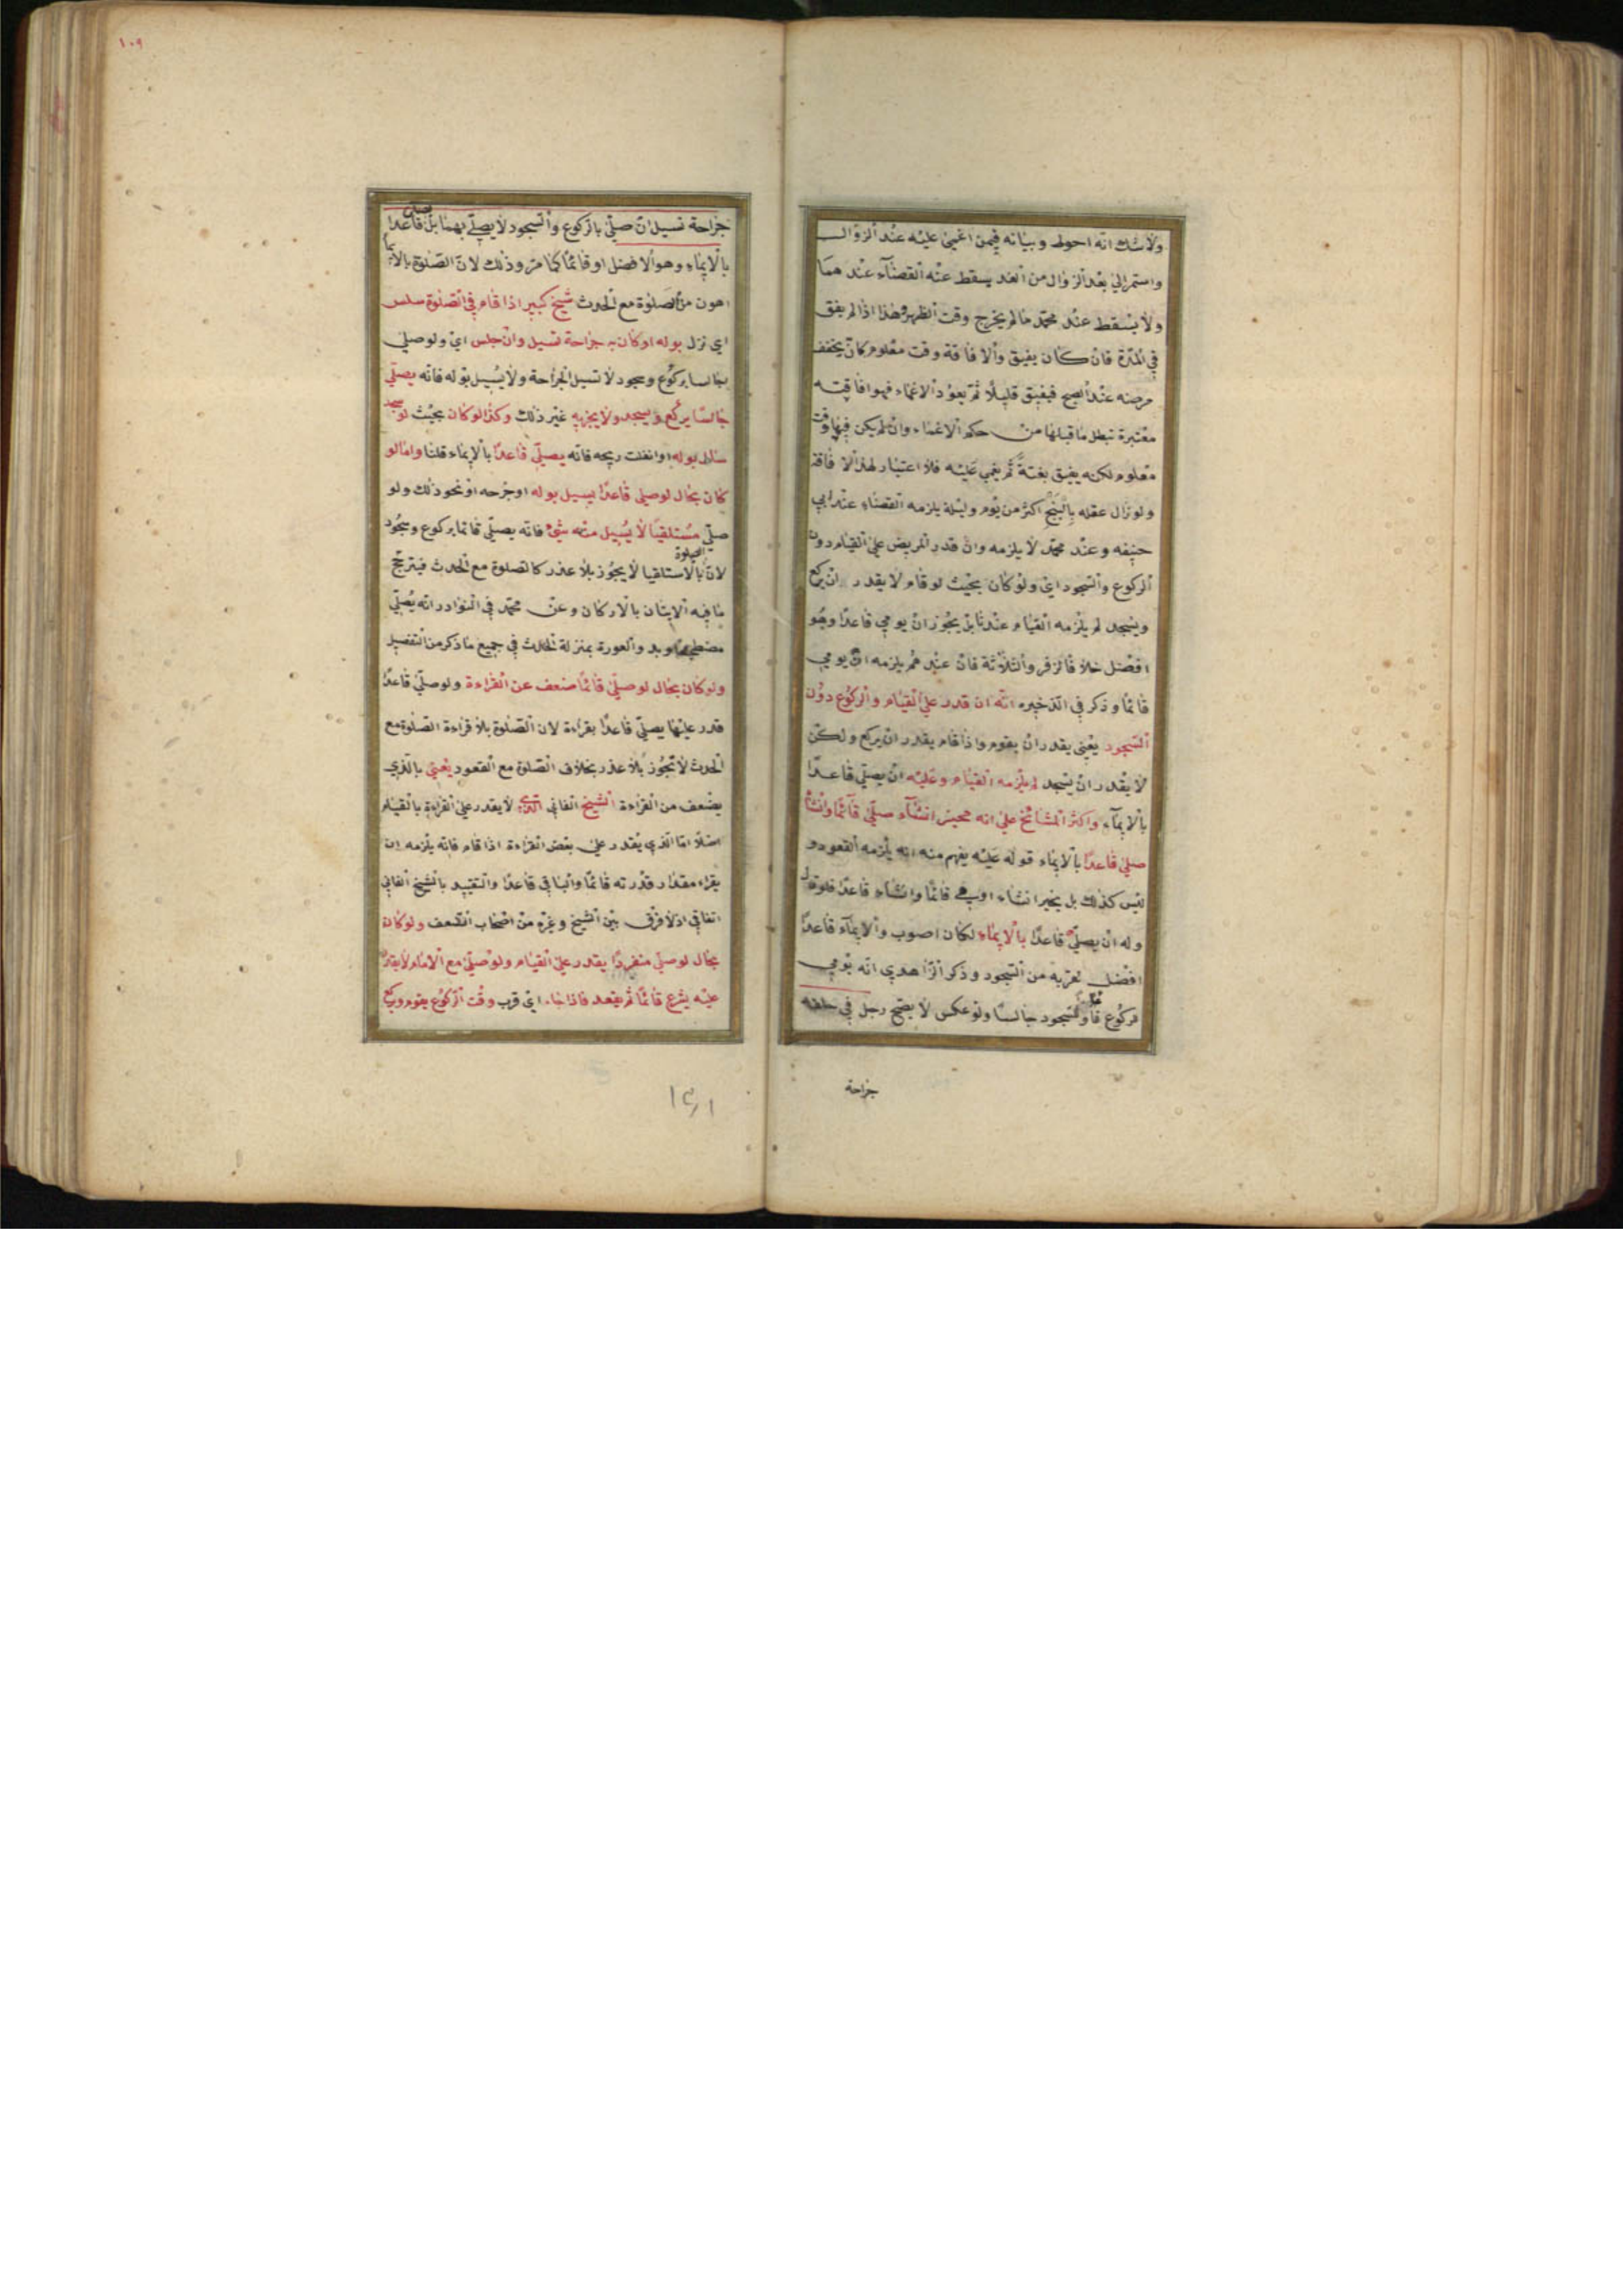 ولا شك انه احوط وبيانه فيمن اغمي عليه عند الزوال
واستمر الي بعد الزوال من الغد يسقط عنه القضآء عندهما
ولا يسقط عند محمد ما لم يخرج وقت الظهر وهذا اذا لم يفق
في المدة فان كان يفيق والافاقة وقت معلوم كان يخفف
مرضه عند الصبح فيفيق قليلا ثم يعود الاغماء فهو افاقته
معتبرة تبطل ما قبلها من حكم الاغماء وان لم يكن فيها وقت
معلوم لكنه يفيق بغتة ثم يغمي عليه فلا اعتبار لهذا الافاقة
ولو زال عقله بالبنج اكثر من يوم وليلة يلزمه القضاء عند ابي
حنيفه وعند محمد لا يلزمه وان قدر المريض علي القيام دون
الركوع والسجود اي ولو كان بحيث لو قام لا يقدر ان يركع
ويسجد لم يلزمه القيام عندنا بل يجوز ان يومي قاعدا وهو
افضل خلافا لزفر والثلاثة فان عندهم يلزمه ان يومي
قائما وذكر في الذخيره انه ان قدر علي القيام والركوع دون
السجود يعني يقدر ان يقوم واذا قام يقدر ان يركع ولكن
لا يقدر ان يسجد لم يلزمه القيام وعليه ان يصلي قاعدا
بالايمآء واكثر المشائخ علي انه مخير ان شآء صلي قآئما وان شآ
صلي قاعدا بالايماء قوله عليه يفهم منه انه يلزمه القعود و
ليس كذلك بل يخير ان شاء اومي قائما وان شاء قاعدا فلو قال
وله ان يصلي قاعدا بالايماء لكان اصوب والايمآء قاعدا
افضل لقربه من السجود وذكر الزاهدي انه يومي
للركوع قائما وللسجود جالسا ولو عكس لا يصح رجل في حلقه
جراحة
١٠٩
جراحة تسيل ان صلي بالركوع والسجود لا يصلي بهما بل يصلي قاعدا
بالايماء وهو الافضل او قائما كما مر وذلك لان الصلوة بالايما
اهون من الصلوة مع الحدث شيخ كبير اذا قام في الصلوة سلس
اي نزل بوله او كان به جراحة تسيل وان جلس اي ولو صلي
جالسا بركوع وسجود لا تسيل الجراحة ولا يسيل بوله فانه يصلي
جالسا يركع ويسجد ولا يجزيه غير ذلك وكذا لو كان بحيث لو سجد
سال بوله او انفلت ريحه فانه يصلي قاعدا بالايماء قلنا واما لو
كان بحال لو صلي قاعدا يسيل بوله او جرحه او نحو ذلك ولو
صلي مستلقيا لا يسيل منه شئ فانه يصلي قائما بركوع وسجود
لان الصلوة بالاستلقيا لا يجوز بلا عذر كالصلوة مع الحدث فيترجح
ما فيه الايتان بالاركان وعن محمد في النوادر انه يصلي
مضطجعا وبد والعورة بمنزلة الحدث في جميع ما ذكر من التفصيل
ولو كان بحال لو صلي قائما ضعف عن القراءة ولو صلي قاعدا
قدر عليها يصلي قاعدا بقراءة لان الصلوة بلا قراءة الصلوة مع
الحدث لا تجوز بلا عذر بخلاف الصلوة مع القعود يعني بالذي
يضعف من القراءة الشيخ الفاني الذي لا يقدر علي القراءة بالقيام
اصلا اما الذي يقدر علي بعض القراءة اذا قام فانه يلزمه ان
يقراء مقدار قدرته قائما والباقي قاعدا والتقييد بالشيخ الفاني
اتفاقي اذ لا فرق بين الشيخ وغيره من اصحاب الضعف ولو كان
بحال لو صلي منفردا يقدر علي القيام ولو صلي مع الامام لا يقدر
عليه يشرع قائما ثم يقعد فاذا جاء اي قرب وقت الركوع يقوم ويركع